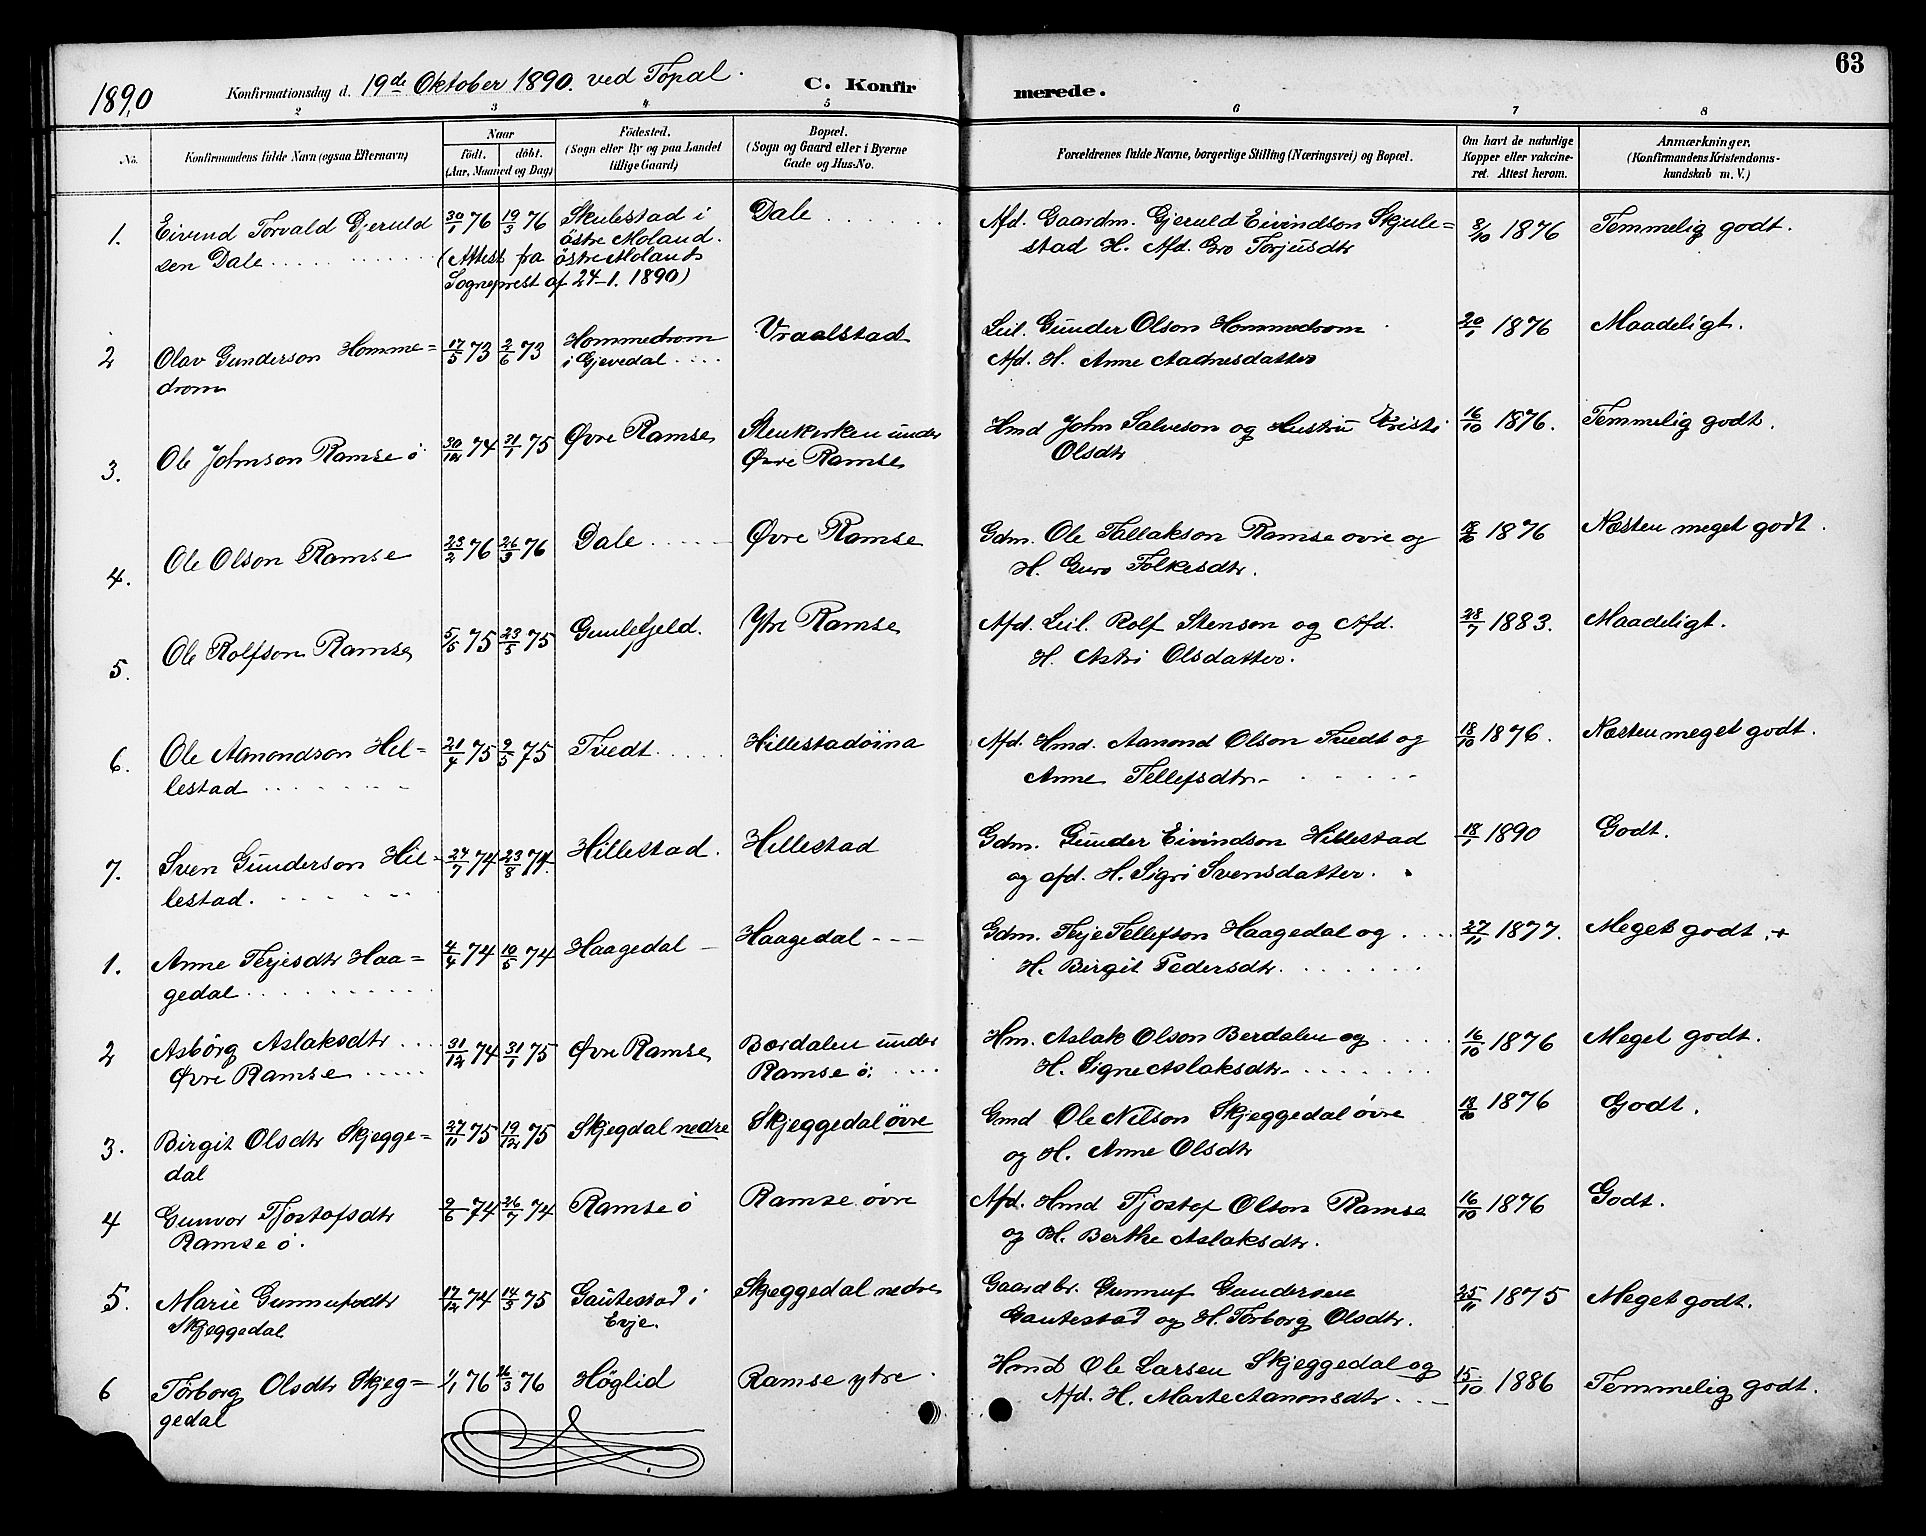 63
1890
Konfirmationsdag d. 19de Oktober 1890. ved Topal.
C. Konfirmerede.
2 3 4 5 6 7 8
No. Konfirmandens fulde Navn (ogsaa Efternavn) Naar födt. döbt. (Aar, Maaned og Dag) Födested. (Sogn eller By og paa Landet tillige Gaard) Bopæl. (Sogn og Gaard eller i Byerne Gade og Hus-No. Forældrenes fulde Navne, borgerlige Stilling (Næringsvei) og Bopæl. Om havt de naturlige Kopper eller vakcineret. Attest herom. Anmærkninger. (Konfirmandens Kristendomskundskab m. V.)
1. Eivind Torvald Gjeruld 30/1 76 19/3 76 Skulestad i Dale Afd. Gaardm. Gjeruld Eivindson Skjule= 8/10 1876 Temmelig godt.
sen Dale östre Moland. stad H. Afd. Gro Torjusdtr
(Attest fra östre Molands
Sogneprest af 24-1. 1890)
2 Olav Gunderson Homme= 17/5 73 2/6 73 Hommedrom Vraalstad Leil. Gunder Olson Hommedrom 20/1 1876 Maadeligt.
drom i Gjevedal Afd. H. Anne Aadnesdatter
3. Ole Johnson Ramse ö 30/12 74 31/1 75 Øvre Ramse Stenkirken under Hmd John Salveson og Hustru Kristi 16/10 1876. Temmelig godt.
Øvre Ramse Olsdtr
4. Ole Olson Ramse 23/2 76 26/3 76 Dale Øvre Ramse Gdm. Ole Tallakson Ramse ovre og 18/10 1876 Næsten meget godt.
H. Guro Folkesdtr.
5. Ole Rolfson Ramse 5/5 75 23/5 75 Gunlefjeld. Ytre Ramse Afd. Leil. Rolf Stenson og Afd. 28/7 1883. Maadeligt.
H. Astri Olsdatter.
6. Ole Aamondson Hil= 21/4 75 9/5 75 Tvedt Hillestadöina Afd. Hmd. Aanond Olson Tvedt og 18/10 1876. Næsten meget godt.
lestad Anne Tellefsdtr
7. Sven Gunderson Hil= 24/7 74 23/8 74. Hillestad. Hillestad Gdm. Gunder Eivindson Hillestad 18/1 1890 Godt.
lestad. og afd. H. Sigri Svensdatter.
1. Anne Terjesdtr Haa= 4/4 74 10/5 74 Haagedal Haagedal Gdm. Terje Tellefson Haagedal og 27/11 1877. Meget godt. +
gedal H. Birgit Pedersdtr.
2 Asbörg Aslaksdtr 31/12 74 31/1 75 Øvre Ramse Bærdalen under Hm. Aslak Olson Berdalen og 16/10 1876 Meget godt.
Øvre Ramse Ramse ö. H. Signe Aslaksdtr
3. Birgit Olsdtr Skjegge= 27/11 75 19/12 75 Skjegdal nedre Skjeggedal övre Gmd Ole Nilson Skjeggedal övre 18/10 1876 Godt.
dal og H. Anne Olsdtr
4 Gunvor Tjostofsdtr 9/6 74 26/7 74 Ramse ö Ramse övre Afd. Hmd Tjostof Olson Ramse 16/10 1876 Godt.
Ramse ö. og H. Berthe Aslaksdtr.
5. Marie Gunnufsdtr 17/12 74 14/3 75 Gautestad i Skjeggedal nedre Gaardbr. Gunnuf Gundersen 25/11 1875 Meget godt.
Skjeggedal Evje. Gautestad og H. Torborg Olsdtr.
6 Torborg Olsdtr Skjeg= 1/1 76 76 Höglid Ramse ytre. Hmd Ole Larsen Skjeggedal og 15/10 1886 Temmelig godt.
gedal Afd. H. Marte Aanonsdtr.